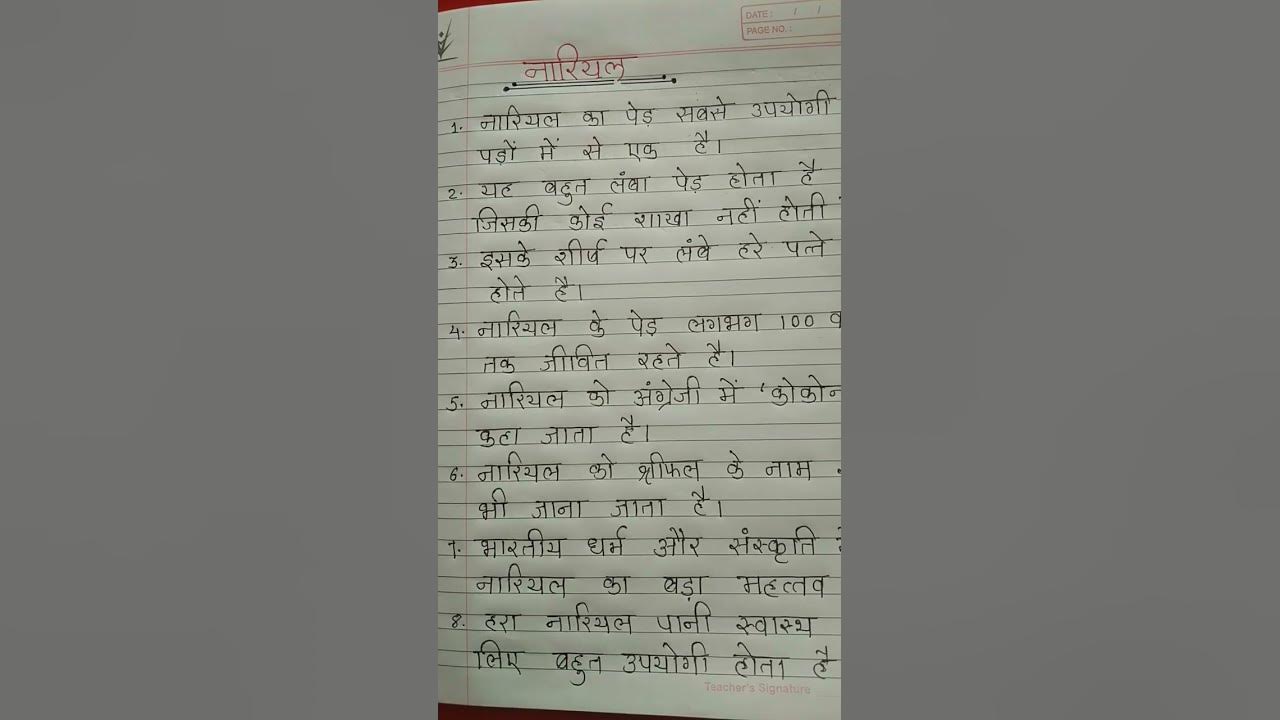 DATE: / /
PAGE NO.:
नारियल
1. नारियल का पेड़ सबसे उपयोगी
पड़ों में से एक है।
2. यह बहुत लंबा पेड़ होता है
जिसकी कोई शाखा नहीं होती
3. इसके शीर्ष पर लंबे हरे पत्ते
होते है।
4. नारियल के पेड़ लगभग 100 व
तक जीवित रहते है।
5. नारियल को अंग्रेजी में 'कोकोन
कहा जाता है।
6. नारियल को श्रीफल के नाम
भी जाना जाता है।
7. भारतीय धर्म और संस्कृति
नारियल का बड़ा महत्तव
8. हरा नारियल पानी स्वास्थ
लिए बहुत उपयोगी होता है
Teacher's Signature